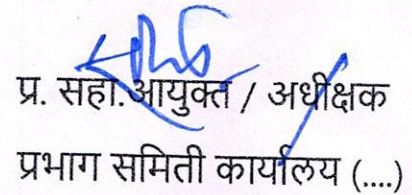 प्र. सहा.आयुक्त / अधीक्षक
प्रभाग समिती कार्यालय (....)